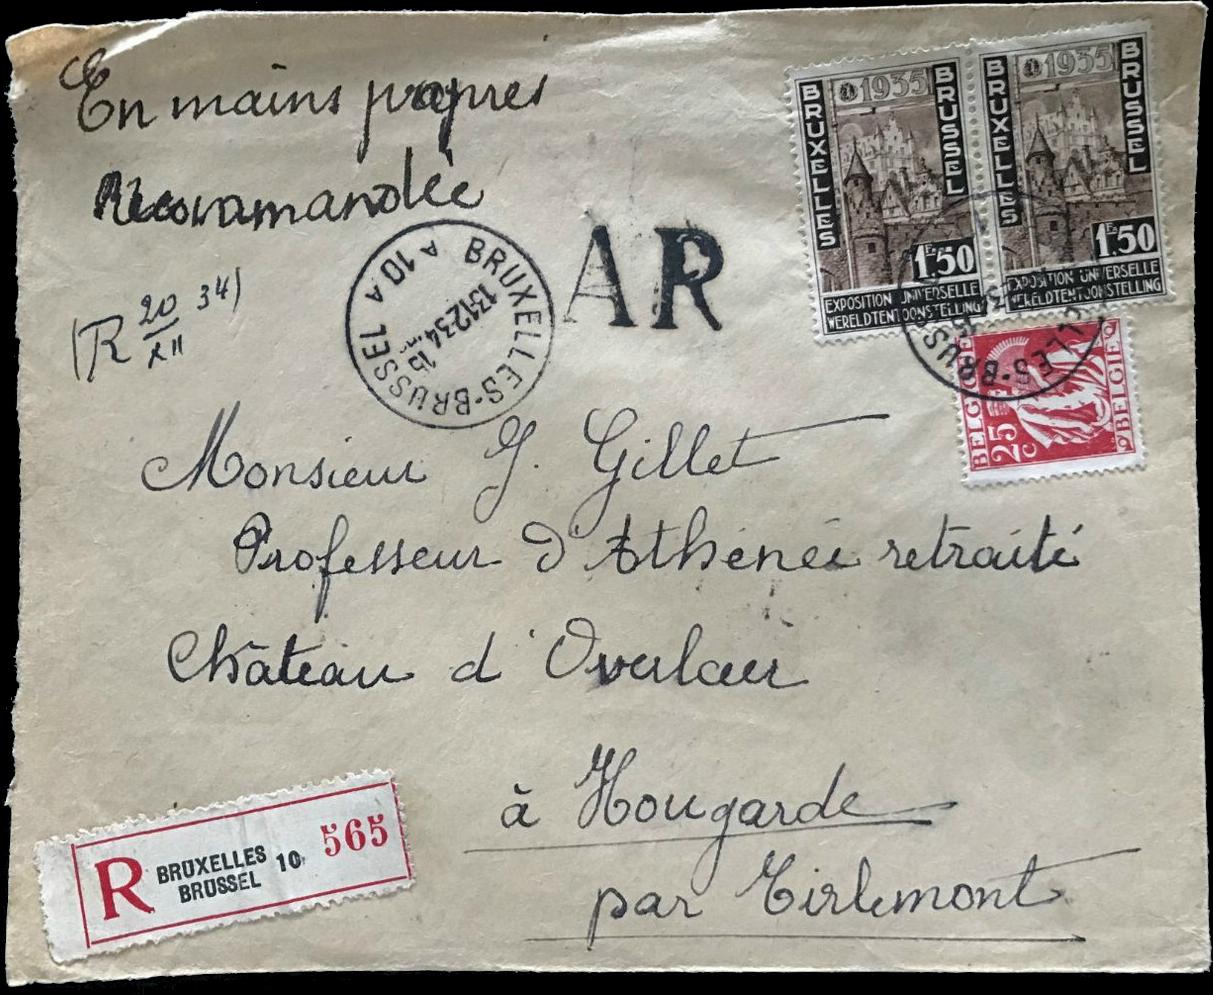 En mains propres
Recommandée
(R 20/XII 34)
BRUXELLES-BRUSSEL
A 10 A
13 12 34 15
AR
1935
BRUXELLES
BRUSSEL
1Fr50
EXPOSITION UNIVERSELLE
WERELDTENTOONSTELLING
1935
BRUXELLES
BRUSSEL
1Fr50
EXPOSITION UNIVERSELLE
WERELDTENTOONSTELLING
LLES-BRUSS
BELGIQUE
25 c
BELGIË
Monsieur J. Gillet
Professeur d'Athénée retraité
Château d'Overlaer
à Hougarde
par Tirlemont
R
BRUXELLES
BRUSSEL
10
565